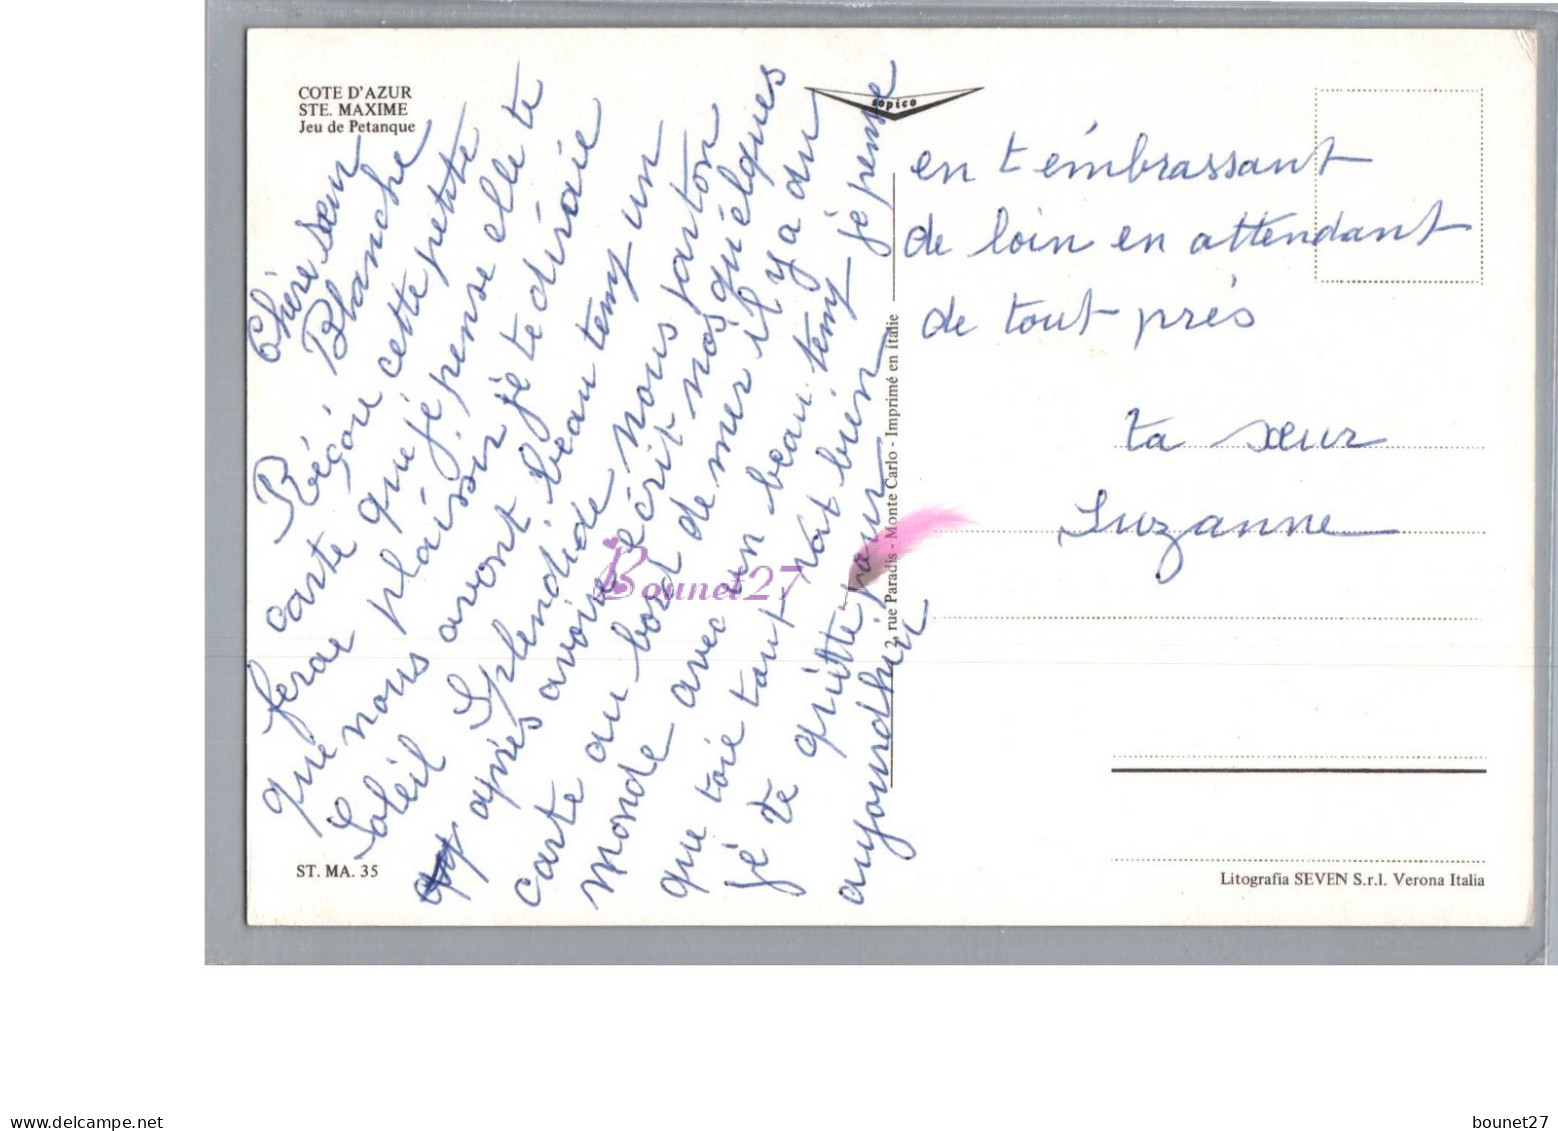 COTE D'AZUR
STE. MAXIME
Jeu de Petanque
sopico
Chère sœur
Blanche
Réçoie cette petite
carte que jé pense elle te
ferai plaissir jé te dirais
que nous avont beau temp un
Soléil Splendide nous parton
après avoire écrit nos quélques
carte au bord de mer il y a du
monde avec un beau temp je pense
que toie tout vat bien
jé te quitte pour
aujourdhui
en t émbrassant
de loin en attendant
de tout prés
ta sœur
Suzanne
2, rue Paradis - Monte Carlo - Imprimé en italie
Bounet27
ST. MA. 35
Litografia SEVEN S.r.l. Verona Italia
www.delcampe.net
bounet27